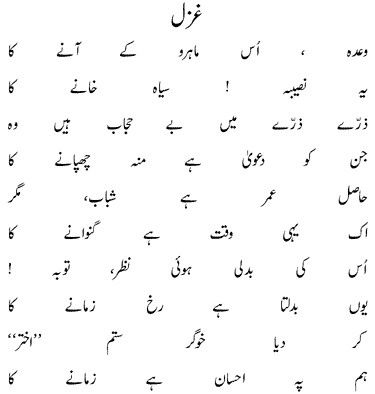 غزل
وعدہ ، اُس ماہرو کے آنے کا
یہ نصیبہ ! سیاہ خانے کا
ذرّے ذرّے میں بے حجاب ہیں وہ
جن کو دعویٰ ہے منہ چھپانے کا
حاصل عمر ہے شباب، مگر
اک یہی وقت ہے گنوانے کا
اُس کی بدلی ہوئی نظر، توبہ !
یوں بدلتا ہے رخ زمانے کا
کر دیا خوگر ستم ’’اختر‘‘
ہم پہ احسان ہے زمانے کا